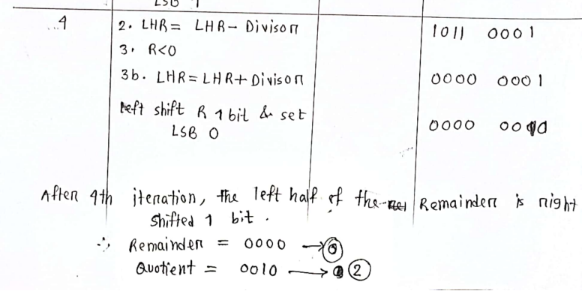 LSB 1
4 2. LHR = LHR - Divison 1011 0001
3. R<0
3b. LHR = LHR + Divison 0000 0001
left shift R 1 bit & set
LSB 0 0000 0010
After 4th iteration, the left half of the Remainder is right
Shifted 1 bit.
∴ Remainder = 0000 → 0
Quotient = 0010 → 2